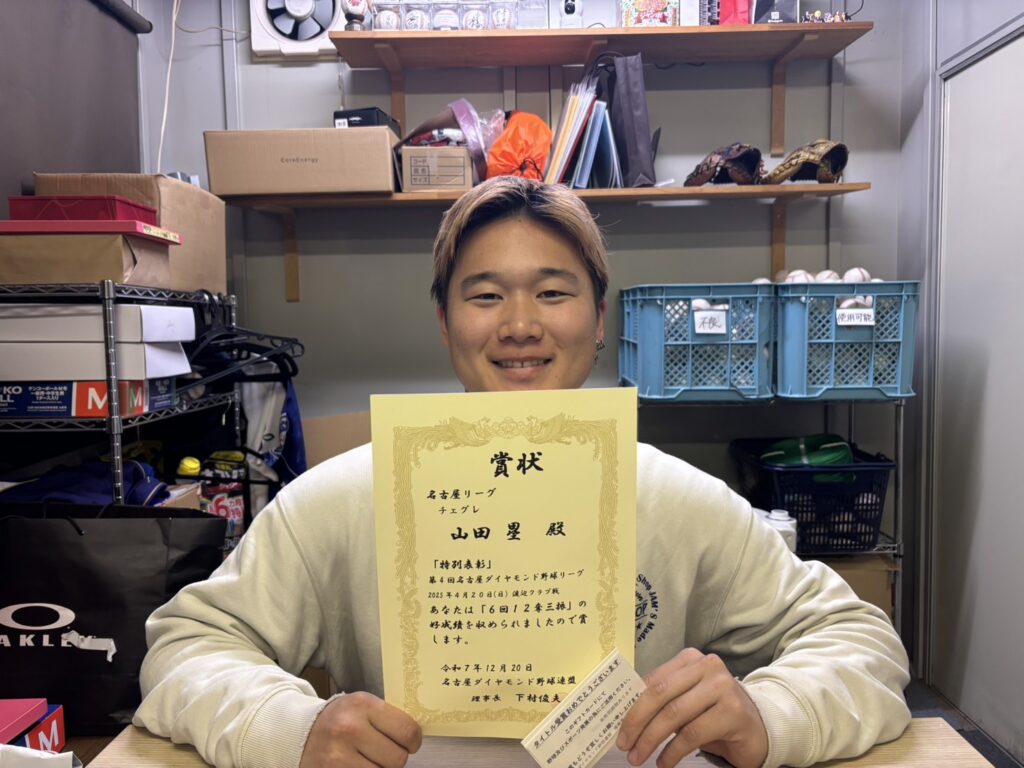 CoreEnergy
コード
サイズ
不良
使用可能
M
M
AKLEY
賞状
名古屋リーグ
チェグレ
山田 塁 殿
「特別表彰」
第4回名古屋ダイヤモンド野球リーグ
2025年4月20日(日) 渡辺クラブ戦
あなたは「6回12奪三振」の
好成績を収められましたので賞
します。
令和7年12月20日
名古屋ダイヤモンド野球連盟
理事長 下村俊夫
タイトル受賞おめでとうございます
このギフトカードにて